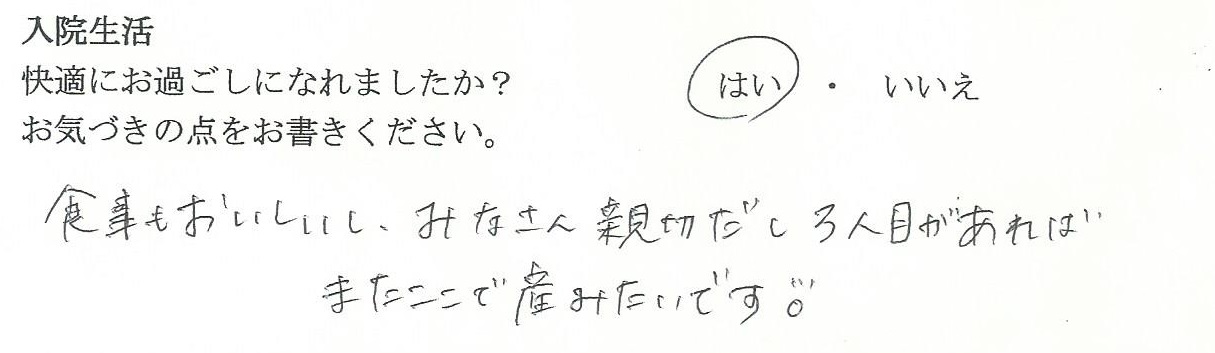 入院生活
快適にお過ごしになれましたか? はい ・ いいえ
お気づきの点をお書きください。
食事もおいしいし、みなさん親切だし3人目があれば
またここで産みたいです。